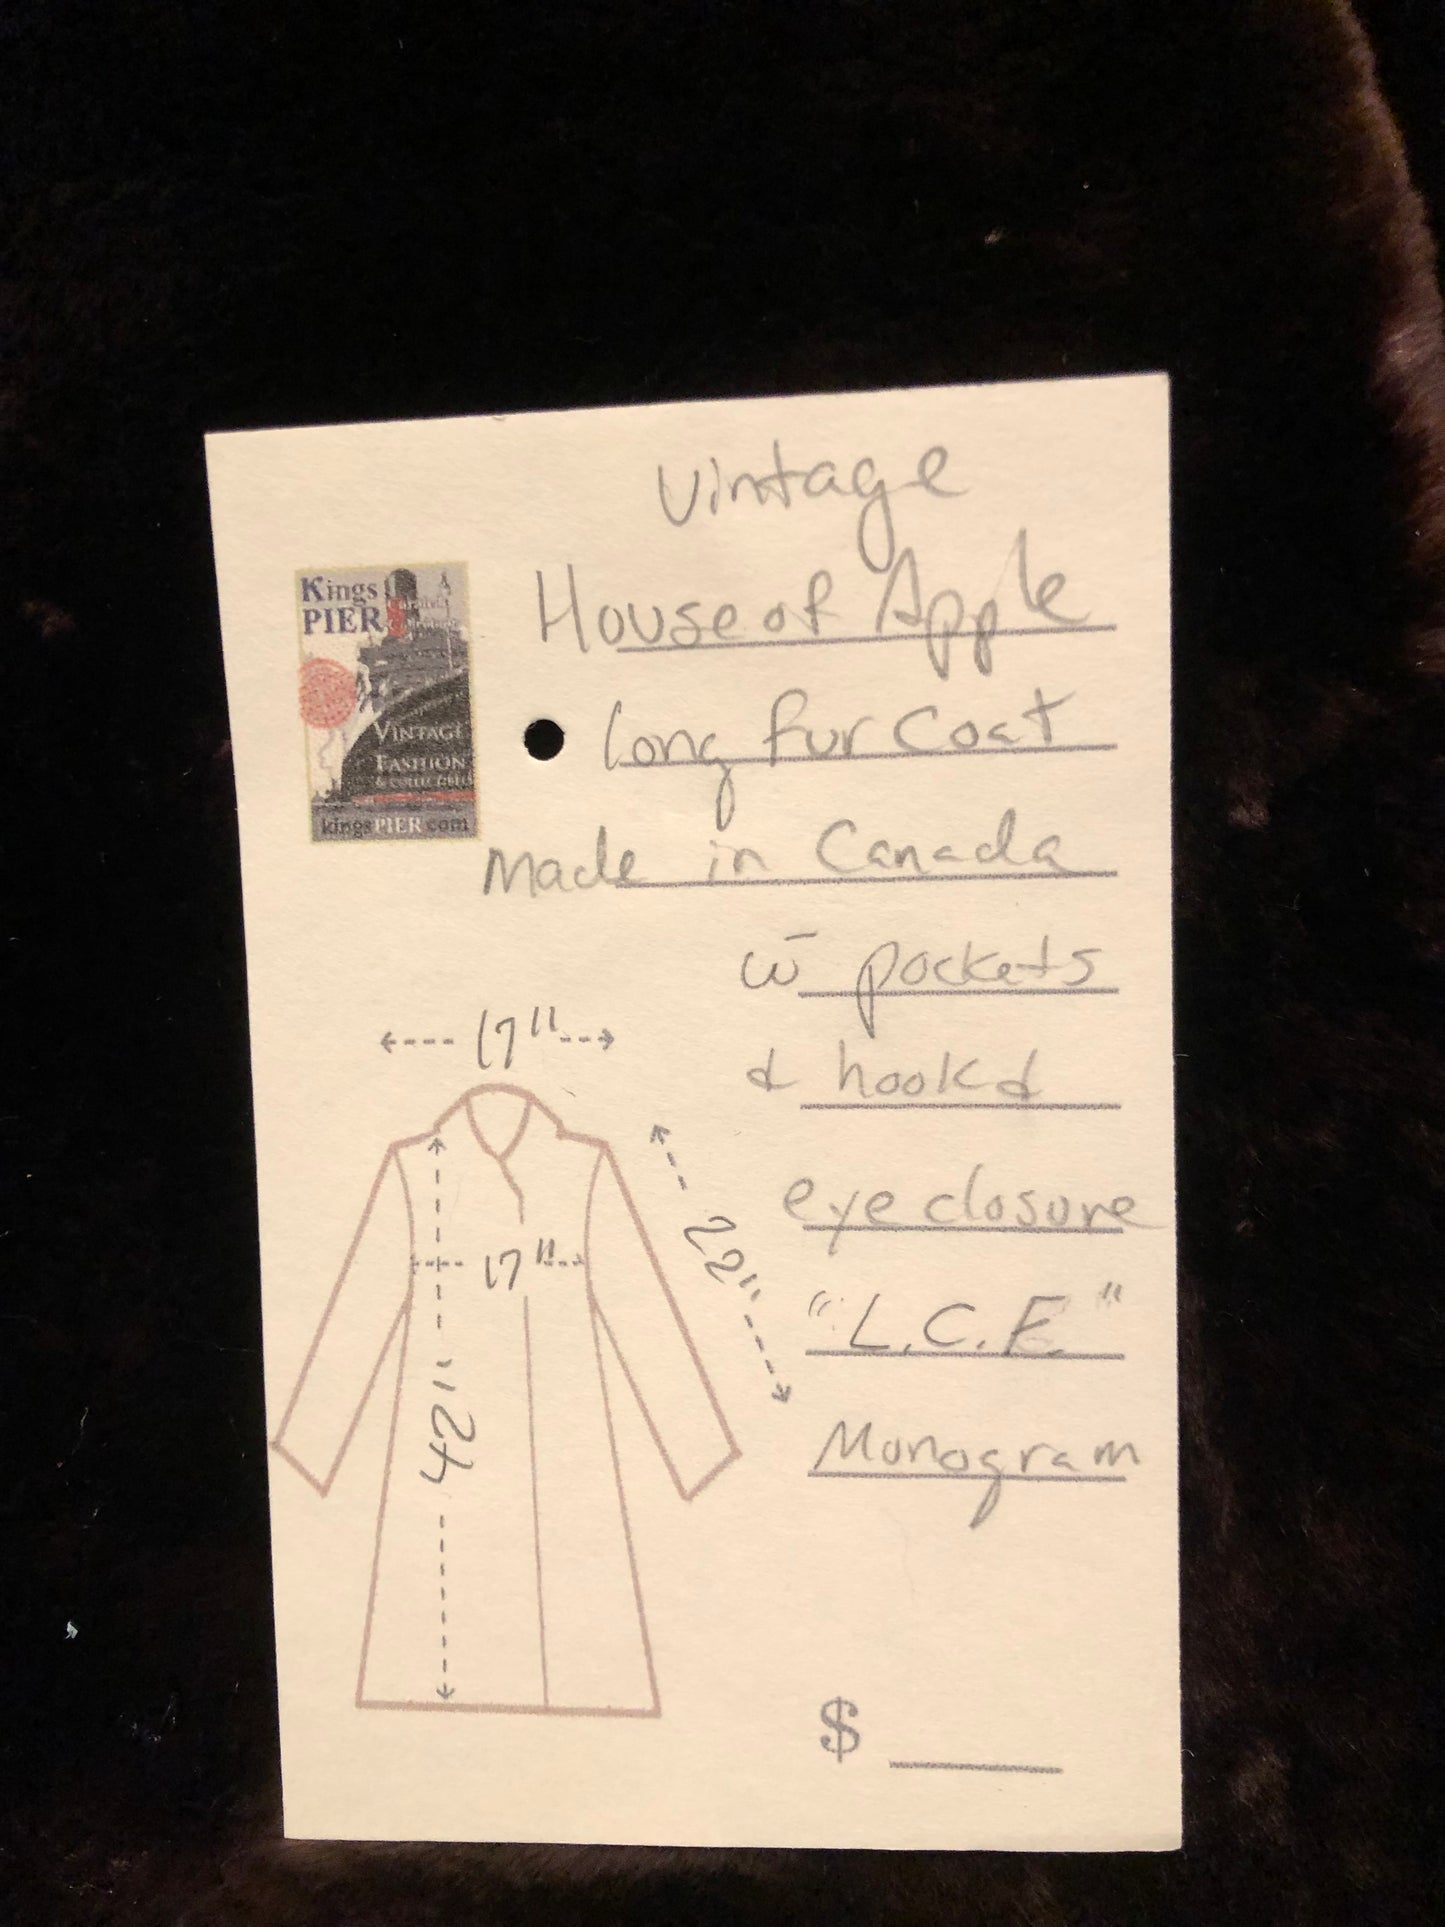 Vintage
House of Apple
long fur coat
Made in Canada
w̄ pockets
& hook &
eye closure
"L.C.E."
Monogram
Kings
PIER
VINTAGE
FASHION
& COLLECTIBLES
kingsPIER.com
17"
17"
22"
42"
$